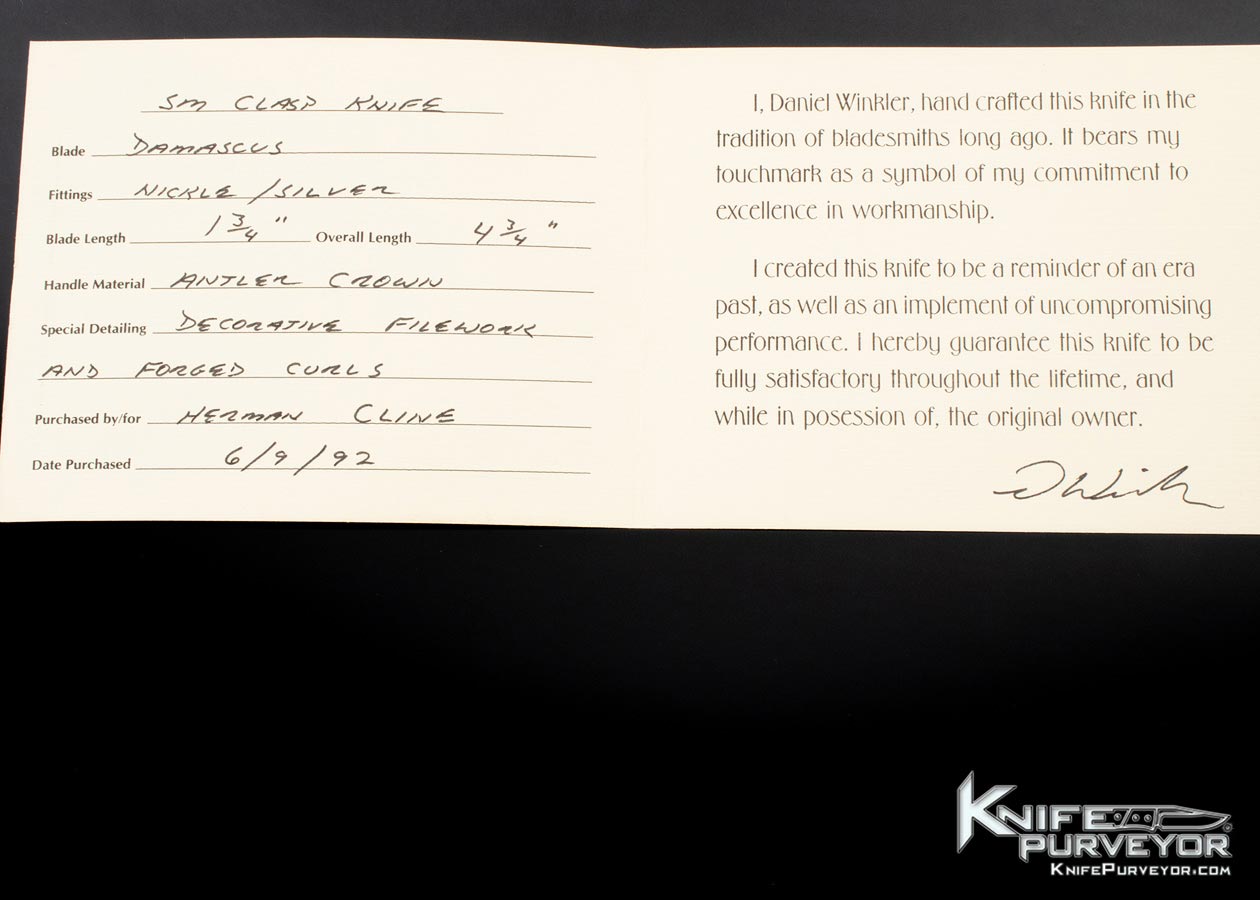 SM CLASP KNIFE
Blade DAMASCUS
Fittings NICKLE / SILVER
Blade Length 1 3/4 " Overall Length 4 3/4 "
Handle Material ANTLER CROWN
Special Detailing DECORATIVE FILEWORK
AND FORGED CURLS
Purchased by/for HERMAN CLINE
Date Purchased 6/9/92
I, Daniel Winkler, hand crafted this knife in the
tradition of bladesmiths long ago. It bears my
touchmark as a symbol of my commitment to
excellence in workmanship.
I created this knife to be a reminder of an era
past, as well as an implement of uncompromising
performance. I hereby guarantee this knife to be
fully satisfactory throughout the lifetime, and
while in posession of, the original owner.
KNIFE
PURVEYOR
KNIFEPURVEYOR.COM